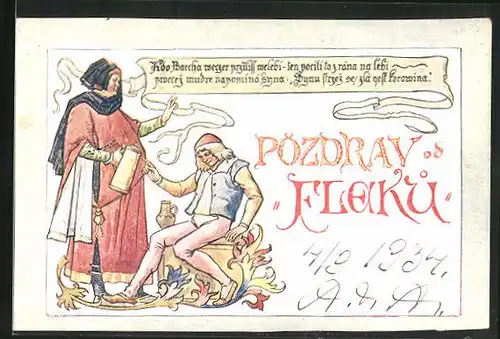 Kdo Baccha weczer přjliss welebi - ten pocíti to z rána na lebi
procež mudrc napomina syna: „Synu střez se, zlá gest kocowina!"
POZDRAV od
„FLEKŮ"
1934.
A. d. A.